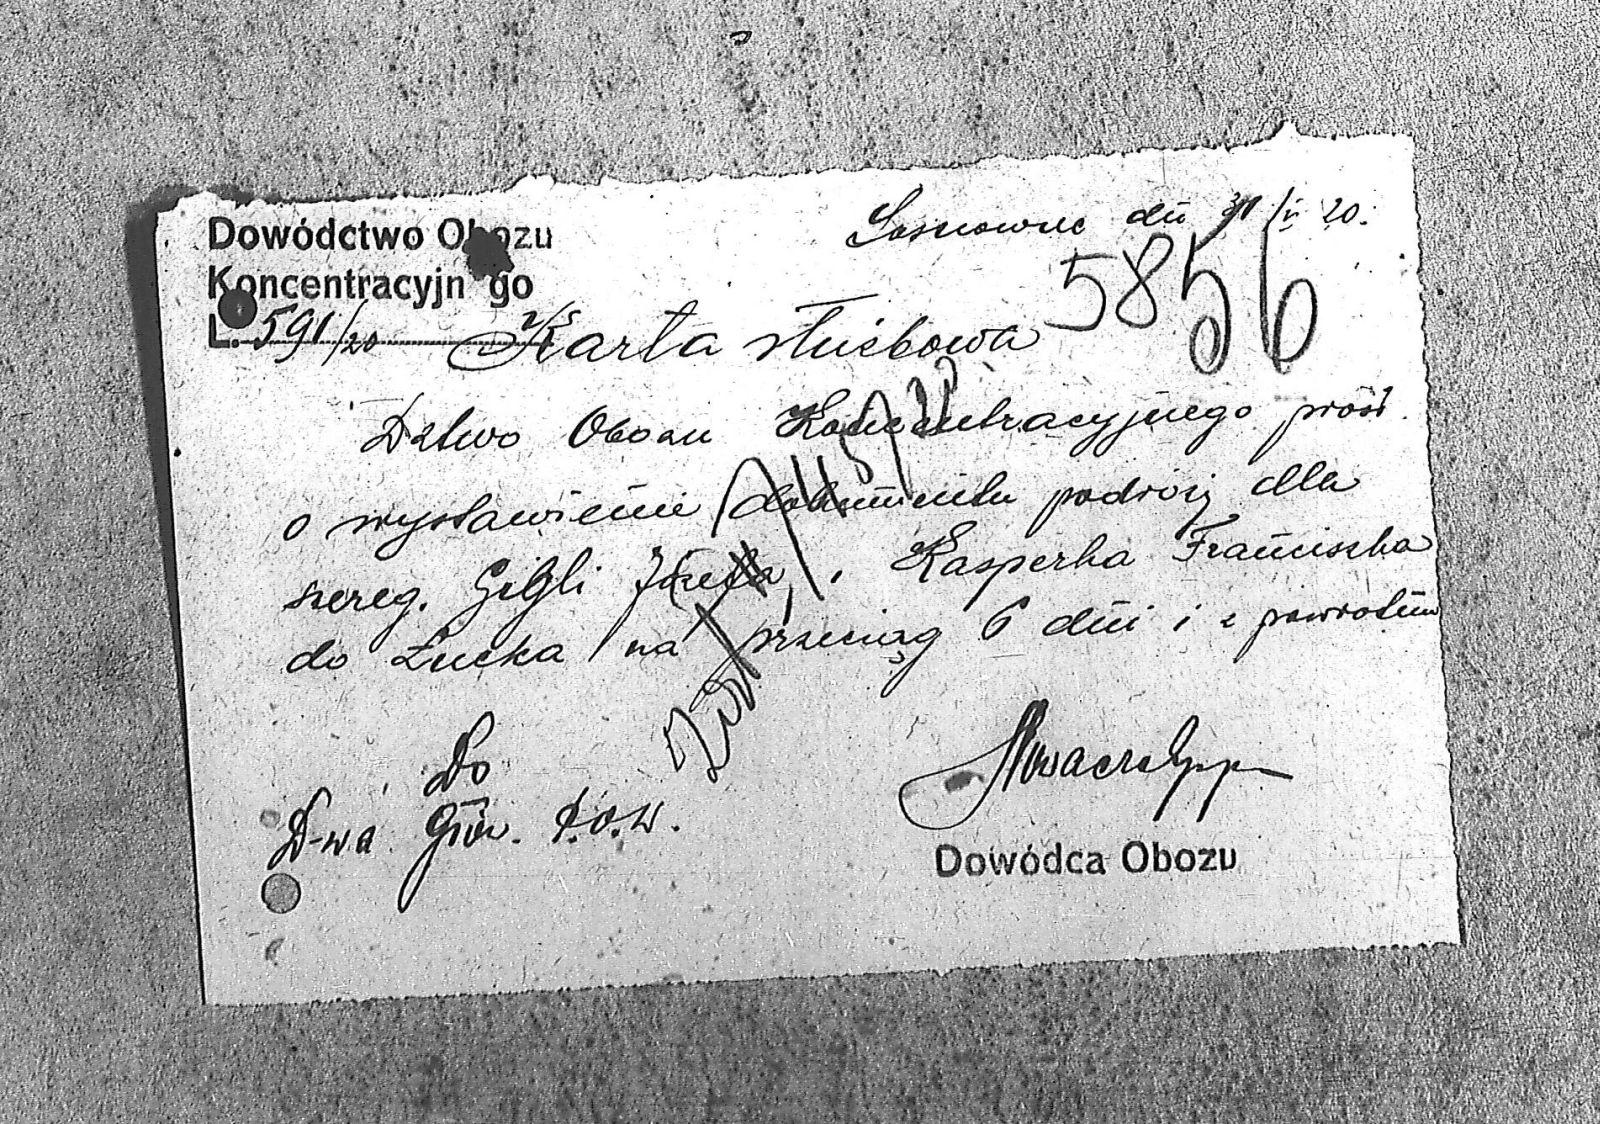 Dowództwo Obozu
Koncentracyjnego
L. 591/20
Sosnowiec dn 31/V 20.
5856
Karta służbowa
Dztwo Obozu Koncentracyjnego prosi
o wystawienie dokumentu podróży dla
szereg. Gigli Józefa, i Kasperka Franciszka
do Łucka na przeciąg 6 dni i z powrotem
Do
D-wa Głów. P.O.W.
Dowódca Obozu